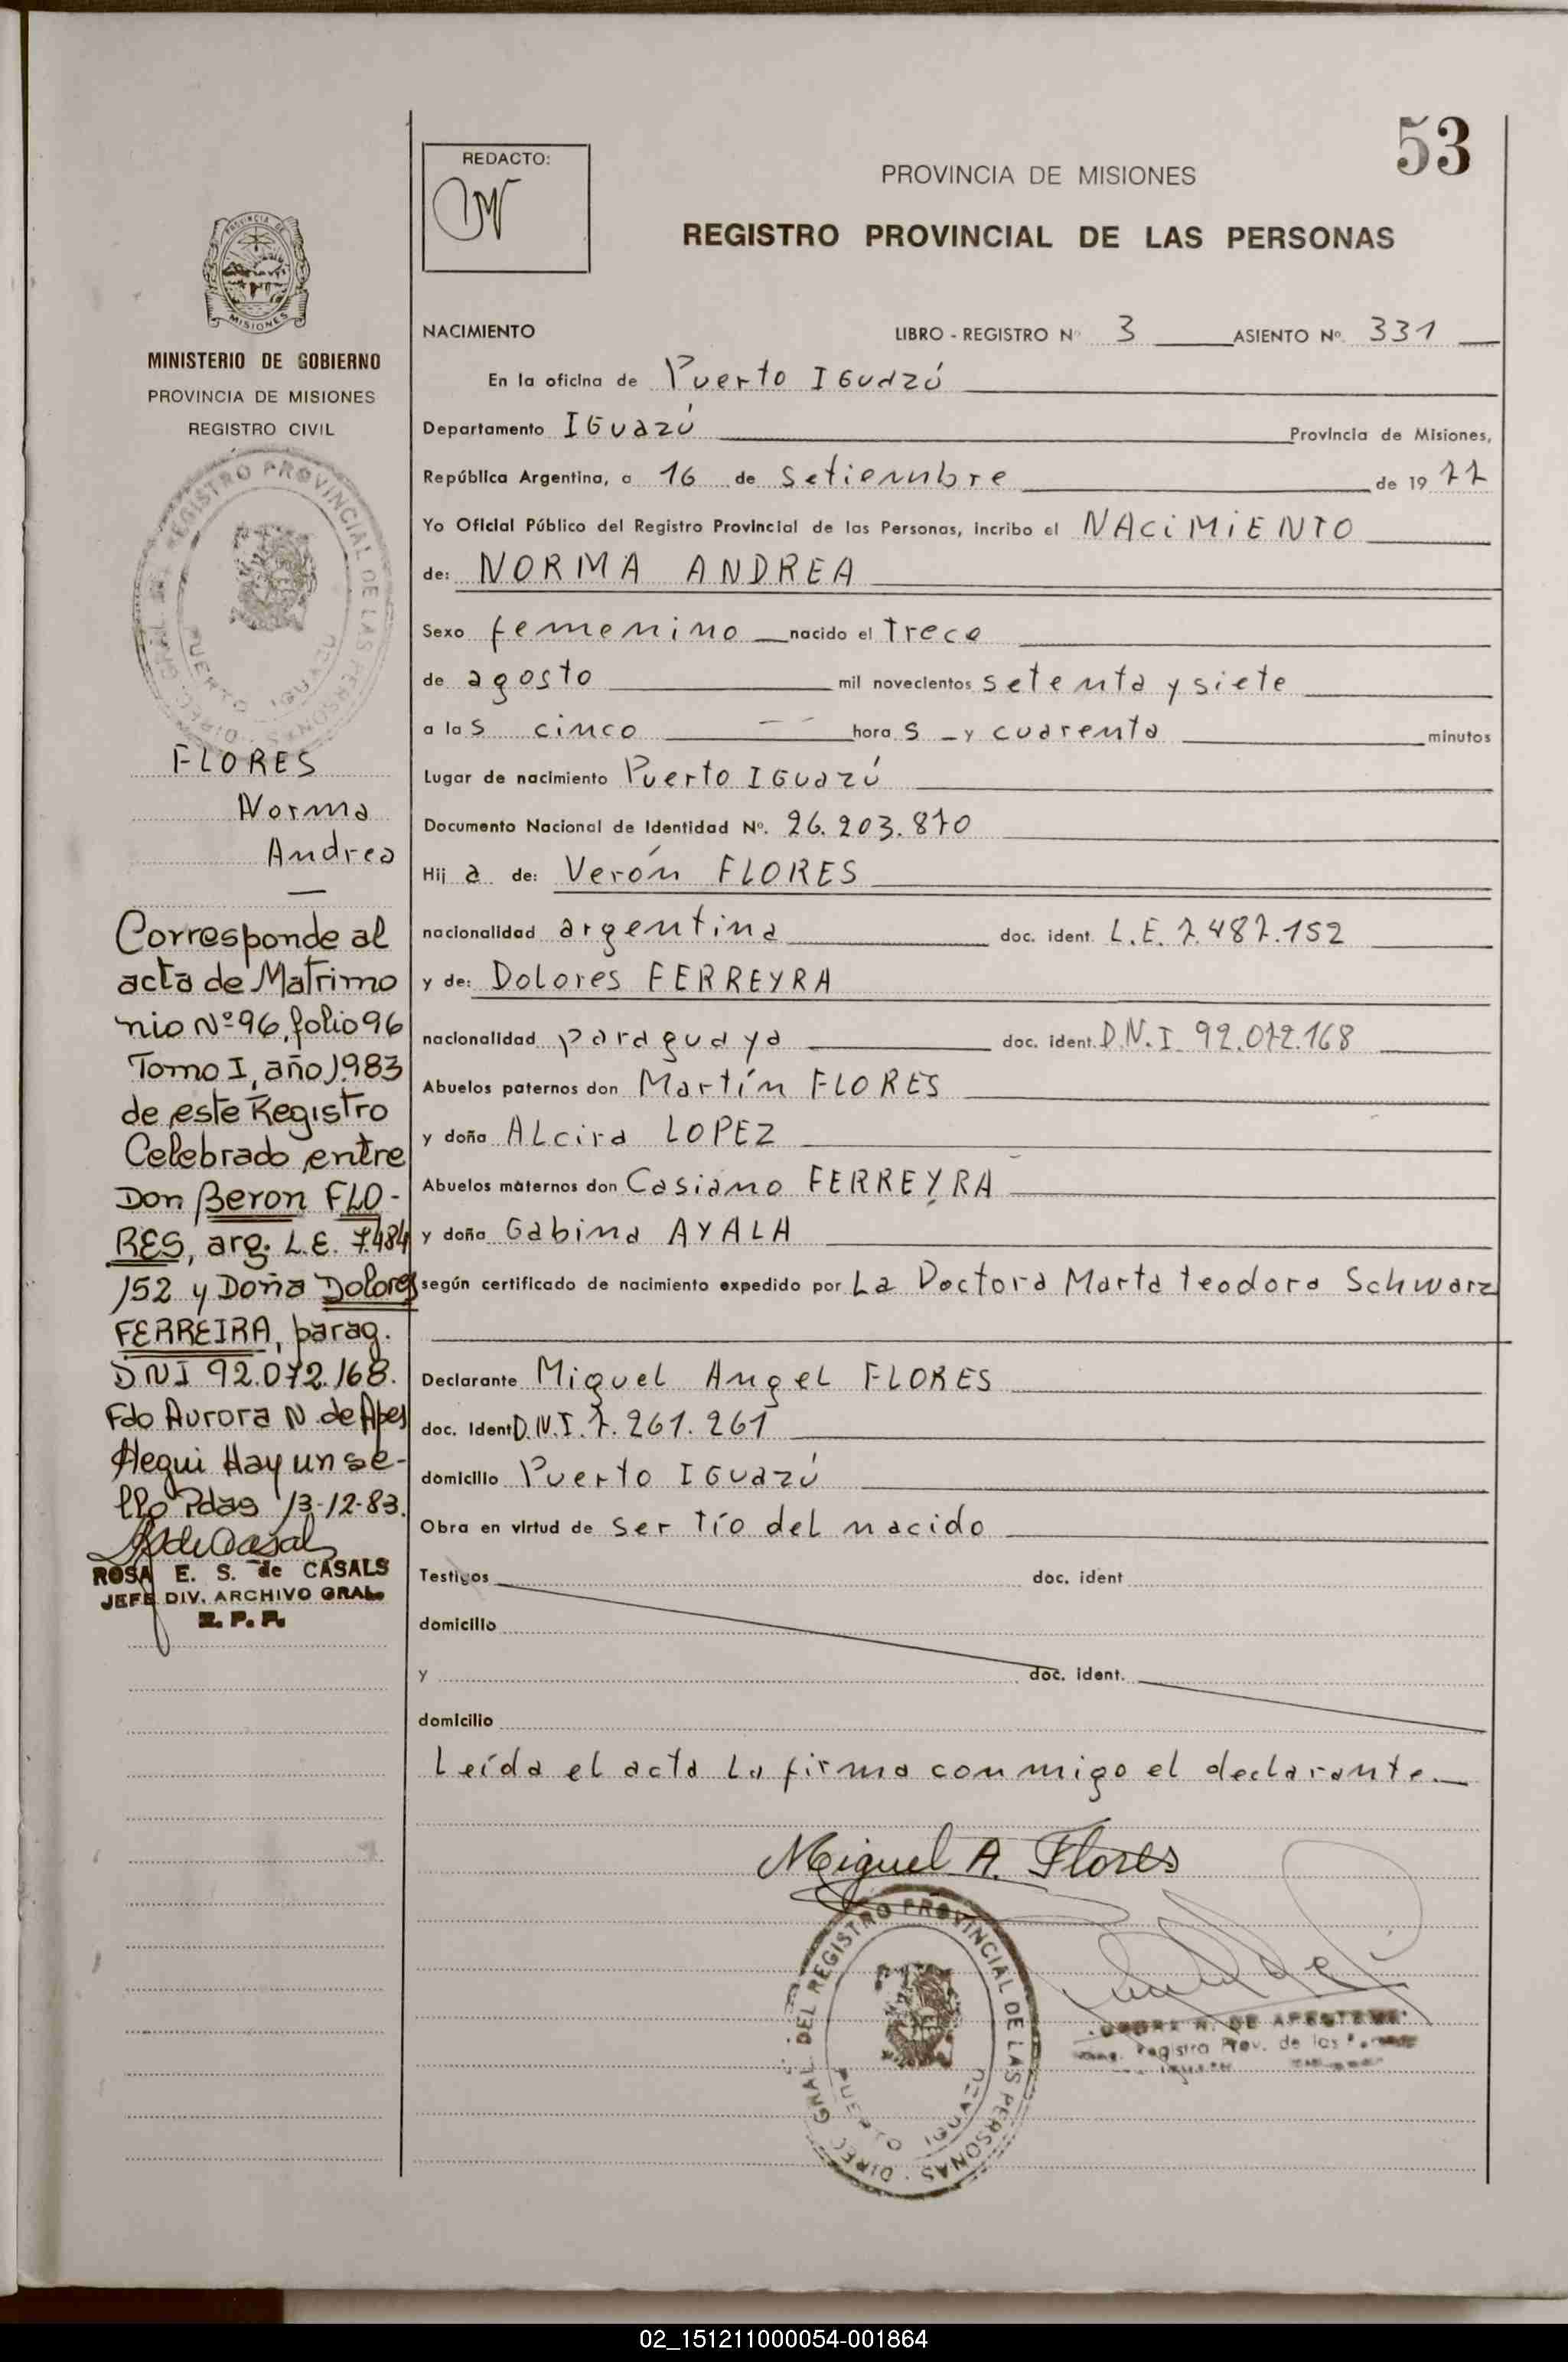 53
REDACTO:
PROVINCIA DE MISIONES
REGISTRO PROVINCIAL DE LAS PERSONAS
MISIONES
MINISTERIO DE GOBIERNO
PROVINCIA DE MISIONES
REGISTRO CIVIL
DIREC. GRAL. DEL REGISTRO PROVINCIAL DE LAS PERSONAS
PUERTO IGUAZU
FLORES
Norma
Andrea
Corresponde al
acta de Matrimo
nio Nº 96, folio 96
Tomo I, año 1.983
de este Registro
Celebrado entre
Don Beron FLO-
RES, arg. L.E. 7.484
152 y Doña Dolores
FERREIRA, parag.
DNI 92.072.168.
Fdo Aurora N. de Apes
Hay un se-
llo Pdas 13-12-83.
ROSA E. S. de CASALS
JEFE DIV. ARCHIVO GRAL.
R. P. P.
NACIMIENTO LIBRO - REGISTRO Nº 3 ASIENTO Nº 331
En la oficina de Puerto IGuazú
Departamento IGuazú Provincia de Misiones,
República Argentina, a 16 de setiembre de 1977
Yo Oficial Público del Registro Provincial de las Personas, incribo el NACiMiENTO
de: NORMA ANDREA
Sexo femenino nacido el trece
de agosto mil novecientos setenta y siete
a las cinco horas y cuarenta minutos
Lugar de nacimiento Puerto IGuazú
Documento Nacional de Identidad Nº. 26.203.870
Hija de: Verón FLORES
nacionalidad argentina doc. ident. L.E. 7.487.152
y de: Dolores FERREYRA
nacionalidad paraguaya doc. ident. D.N.I. 92.072.168
Abuelos paternos don Martín FLORES
y doña ALcira LOPEZ
Abuelos maternos don Casiano FERREYRA
y doña Gabina AYALA
según certificado de nacimiento expedido por La Doctora Marta teodora Schwarz
Declarante Miguel Angel FLORES
doc. Ident D.N.I. 7.261.261
domicilio Puerto IGuazú
Obra en virtud de ser tío del nacido
Testigos doc. ident
domicilio
y doc. ident.
domicilio
Leída el acta La firma conmigo el declarante.
Miguel A. Flores
DIREC. GRAL. DEL REGISTRO PROVINCIAL DE LAS PERSONAS
PUERTO IGUAZU
N. DE
Registro Prov. de las
02_151211000054-001864